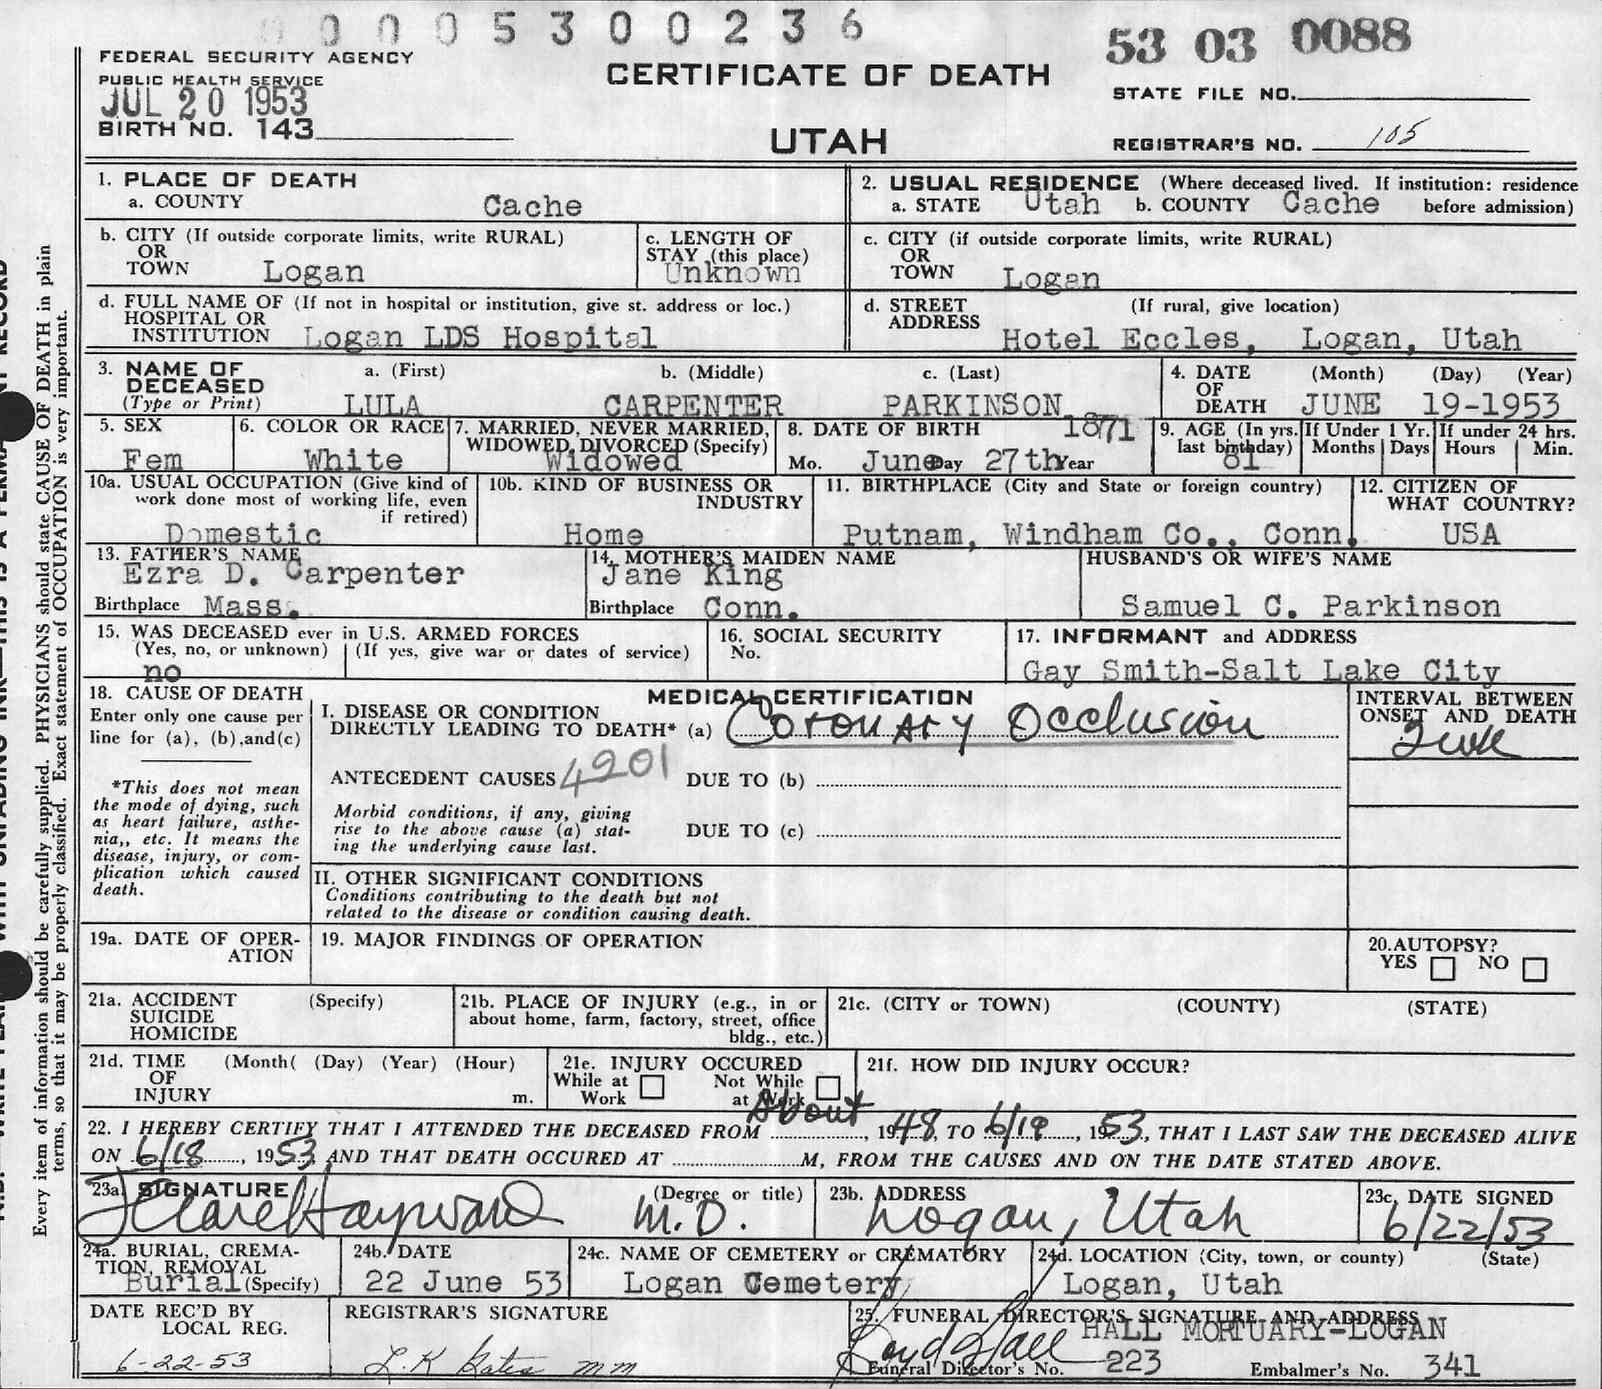 0005300236
53 03 0088
FEDERAL SECURITY AGENCY
PUBLIC HEALTH SERVICE
JUL 20 1953
BIRTH NO. 143
CERTIFICATE OF DEATH
UTAH
STATE FILE NO.
REGISTRAR'S NO. 105
1. PLACE OF DEATH
a. COUNTY Cache
2. USUAL RESIDENCE (Where deceased lived. If institution: residence
a. STATE Utah b. COUNTY Cache before admission)
b. CITY (If outside corporate limits, write RURAL)
OR
TOWN Logan
c. LENGTH OF
STAY (this place)
Unknown
c. CITY (if outside corporate limits, write RURAL)
OR
TOWN Logan
d. FULL NAME OF (If not in hospital or institution, give st. address or loc.)
HOSPITAL OR
INSTITUTION Logan LDS Hospital
d. STREET (If rural, give location)
ADDRESS Hotel Eccles, Logan, Utah
3. NAME OF
DECEASED
(Type or Print)
a. (First) b. (Middle) c. (Last)
LULA CARPENTER PARKINSON
4. DATE (Month) (Day) (Year)
OF
DEATH JUNE 19-1953
5. SEX
Fem
6. COLOR OR RACE
White
7. MARRIED, NEVER MARRIED,
WIDOWED, DIVORCED (Specify)
Widowed
8. DATE OF BIRTH 1871
Mo. June Day 27th Year
9. AGE (In yrs.
last birthday)
81
If Under 1 Yr.
Months Days
If under 24 hrs.
Hours Min.
10a. USUAL OCCUPATION (Give kind of
work done most of working life, even
if retired)
Domestic
10b. KIND OF BUSINESS OR
INDUSTRY
Home
11. BIRTHPLACE (City and State or foreign country)
Putnam, Windham Co., Conn.
12. CITIZEN OF
WHAT COUNTRY?
USA
13. FATHER'S NAME
Ezra D. Carpenter
Birthplace Mass.
14. MOTHER'S MAIDEN NAME
Jane King
Birthplace Conn.
HUSBAND'S OR WIFE'S NAME
Samuel C. Parkinson
15. WAS DECEASED ever in U.S. ARMED FORCES
(Yes, no, or unknown) (If yes, give war or dates of service)
no
16. SOCIAL SECURITY
No.
17. INFORMANT and ADDRESS
Gay Smith-Salt Lake City
18. CAUSE OF DEATH
Enter only one cause per
line for (a), (b),and(c)
*This does not mean
the mode of dying, such
as heart failure, asthe-
nia,, etc. It means the
disease, injury, or com-
plication which caused
death.
MEDICAL CERTIFICATION
I. DISEASE OR CONDITION
DIRECTLY LEADING TO DEATH* (a) Coronary Occlusion
ANTECEDENT CAUSES 4201 DUE TO (b)
Morbid conditions, if any, giving
rise to the above cause (a) stat-
ing the underlying cause last.
DUE TO (c)
II. OTHER SIGNIFICANT CONDITIONS
Conditions contributing to the death but not
related to the disease or condition causing death.
INTERVAL BETWEEN
ONSET AND DEATH
19a. DATE OF OPER-
ATION
19. MAJOR FINDINGS OF OPERATION
20. AUTOPSY?
YES NO
21a. ACCIDENT (Specify)
SUICIDE
HOMICIDE
21b. PLACE OF INJURY (e.g., in or
about home, farm, factory, street, office
bldg., etc.)
21c. (CITY or TOWN) (COUNTY) (STATE)
21d. TIME (Month( (Day) (Year) (Hour)
OF
INJURY m.
21e. INJURY OCCURED
While at Not While
Work at Work
21f. HOW DID INJURY OCCUR?
22. I HEREBY CERTIFY THAT I ATTENDED THE DECEASED FROM About, 1948, TO 6/19, 1953, THAT I LAST SAW THE DECEASED ALIVE
ON 6/18, 1953, AND THAT DEATH OCCURED AT M, FROM THE CAUSES AND ON THE DATE STATED ABOVE.
23a. SIGNATURE (Degree or title)
J Clare Hayward M.D.
23b. ADDRESS
Logan, Utah
23c. DATE SIGNED
6/22/53
24a. BURIAL, CREMA-
TION, REMOVAL
Burial (Specify)
24b. DATE
22 June 53
24c. NAME OF CEMETERY or CREMATORY
Logan Cemetery
24d. LOCATION (City, town, or county) (State)
Logan, Utah
DATE REC'D BY
LOCAL REG.
6-22-53
REGISTRAR'S SIGNATURE
L.K. Gates mm
25. FUNERAL DIRECTOR'S SIGNATURE AND ADDRESS
HALL MORTUARY-LOGAN
Boyd Hall
Funeral Director's No. 223 Embalmer's No. 341
Every item of information should be carefully supplied. PHYSICIANS should state CAUSE OF DEATH in plain
terms, so that it may be properly classified. Exact statement of OCCUPATION is very important.